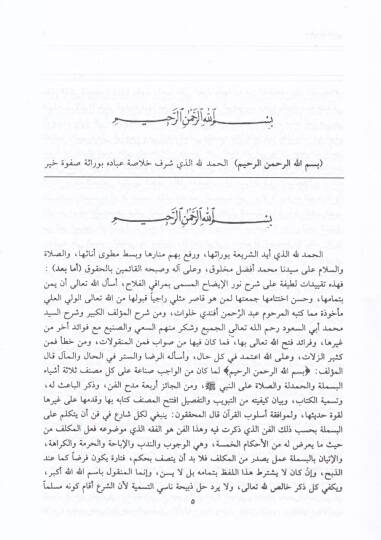 بسم الله الرحمن الرحيم
(بسم الله الرحمن الرحيم) الحمد لله الذي شرف خلاصة عباده بوراثة صفوة خير
بسم الله الرحمن الرحيم
الحمد لله الذي أيد الشريعة بوراثها، ورفع بهم منارها وبسط مطوى أناتها، والصلاة
والسلام على سيدنا محمد أفضل مخلوق، وعلى آله وصحبه القائمين بالحقوق (أما بعد) :
فهذه تقييدات لطيفة على شرح نور الإيضاح المسمى بمراقي الفلاح، أسأل الله تعالى أن يمن
بتمامها، وحسن اختتامها جمعتها لمن هو قاصر مثلي راجياً قبولها من الله تعالى الولي العلي
مأخوذة مما كتبه المرحوم عبد الرحمن أفندي خلوات، ومن شرح المؤلف الكبير وشرح السيد
محمد أبي السعود رحم الله تعالى الجميع وشكر منهم السعي والصنيع مع فوائد أخر من
غيرها، وفرائد فتح الله تعالى بها، فما كان فيها من صواب فمن المنقولات، ومن خطأ فمن
كثير الزلات، وعلى الله اعتمد في كل حال، وأسأله الرضا والستر في الحال والمآل قال
المؤلف: ﴿بسم الله الرحمن الرحيم﴾ لما كان من الواجب صناعة على كل مصنف ثلاثة أشياء
البسملة والحمدلة والصلاة على النبي ﷺ، ومن الجائز أربعة مدح الفن، وذكر الباعث له،
وتسمية الكتاب، وبيان كيفيته من التبويب والتفصيل افتتح المصنف كتابه بها وقدمها على غيرها
لقوة حديثها، ولموافقة أسلوب القرآن قال المحققون: ينبغي لكل شارع في فن أن يتكلم على
البسملة بحسب ذلك الفن الذي ذكرت فيه وهذا الفن هو الفقه الذي موضوعه فعل المكلف من
حيث ما يعرض له من الأحكام الخمسة، وهي الوجوب والندب والإباحة والحرمة والكراهة،
والإتيان بالبسملة عمل يصدر من المكلف فلا بد أن يتصف بحكم، فتارة يكون فرضاً كما عند
الذبح، وإن كان لا يشترط هذا اللفظ بتمامه بل لا يسن، وإنما المنقول باسم الله الله أكبر،
ويكفي كل ذكر خالص لله تعالى، ولا يرد حل ذبيحة ناسي التسمية لأن الشرع أقام كونه مسلماً
٥